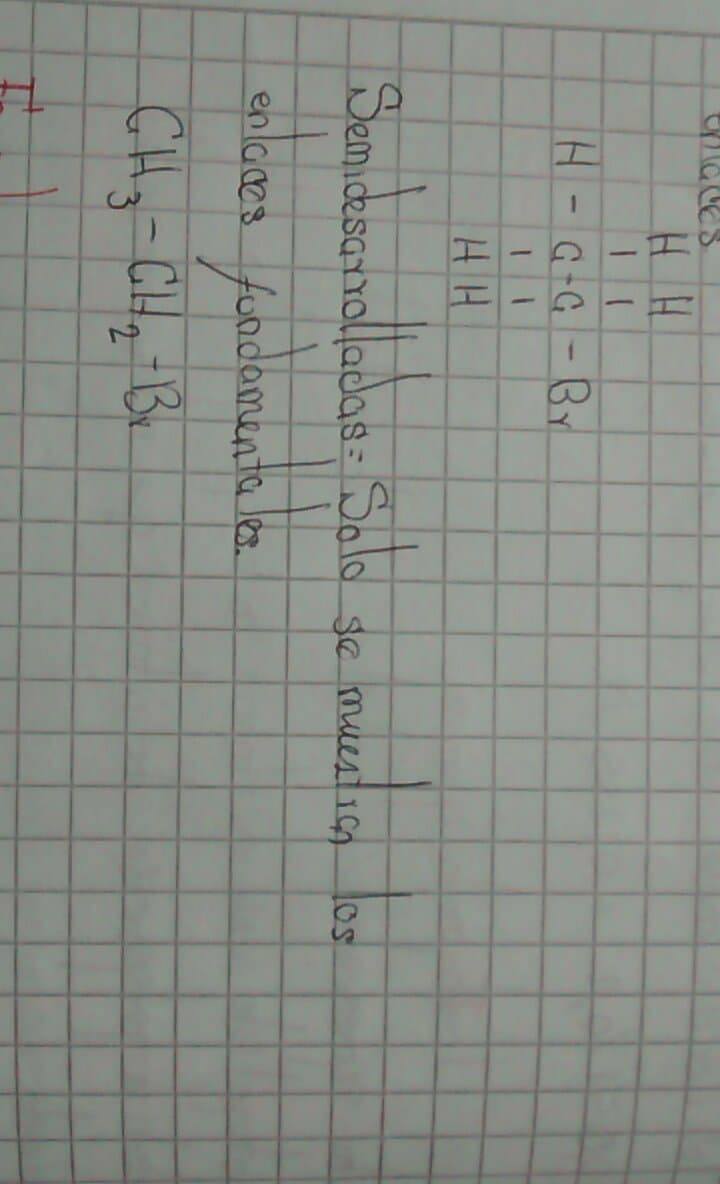 enlaces
H H
| |
H - C - C - Br
| |
H H
Semidesarrolladas = Solo se muestran los
enlaces fundamentales.
CH3 - CH2 - Br